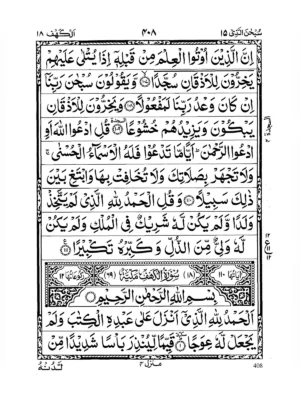 سُبْحٰنَ الَّذِیْ ١٥ ٤٠٨ اَلْكَهْف ١٨
اِنَّ الَّذِيْنَ اُوْتُوا الْعِلْمَ مِنْ قَبْلِهٖٓ اِذَا يُتْلٰى عَلَيْهِمْ
يَخِرُّوْنَ لِلْاَذْقَانِ سُجَّدًا ۙ وَّيَقُوْلُوْنَ سُبْحٰنَ رَبِّنَآ
اِنْ كَانَ وَعْدُ رَبِّنَا لَمَفْعُوْلًا وَيَخِرُّوْنَ لِلْاَذْقَانِ
يَبْكُوْنَ وَيَزِيْدُهُمْ خُشُوْعًا ۩ قُلِ ادْعُوا اللّٰهَ اَوِ
ادْعُوا الرَّحْمٰنَ ؕ اَيًّا مَّا تَدْعُوْا فَلَهُ الْاَسْمَآءُ الْحُسْنٰى ۚ
وَلَا تَجْهَرْ بِصَلَاتِكَ وَلَا تُخَافِتْ بِهَا وَابْتَغِ بَيْنَ
ذٰلِكَ سَبِيْلًا وَقُلِ الْحَمْدُ لِلّٰهِ الَّذِيْ لَمْ يَتَّخِذْ
وَلَدًا وَّلَمْ يَكُنْ لَّهٗ شَرِيْكٌ فِي الْمُلْكِ وَلَمْ يَكُنْ
لَّهٗ وَلِيٌّ مِّنَ الذُّلِّ وَكَبِّرْهُ تَكْبِيْرًا
اٰيَاتُهَا ١١٠ (١٨) سُوْرَةُ الْكَهْفِ مَكِّيَّةٌ (٦٩) رُكُوْعَاتُهَا ١٢
بِسْمِ اللّٰهِ الرَّحْمٰنِ الرَّحِيْمِ
اَلْحَمْدُ لِلّٰهِ الَّذِيْٓ اَنْزَلَ عَلٰى عَبْدِهِ الْكِتٰبَ وَلَمْ
يَجْعَلْ لَّهٗ عِوَجًا قَيِّمًا لِّيُنْذِرَ بَاْسًا شَدِيْدًا مِّنْ
لَّدُنْهُ
منزل ٤
408